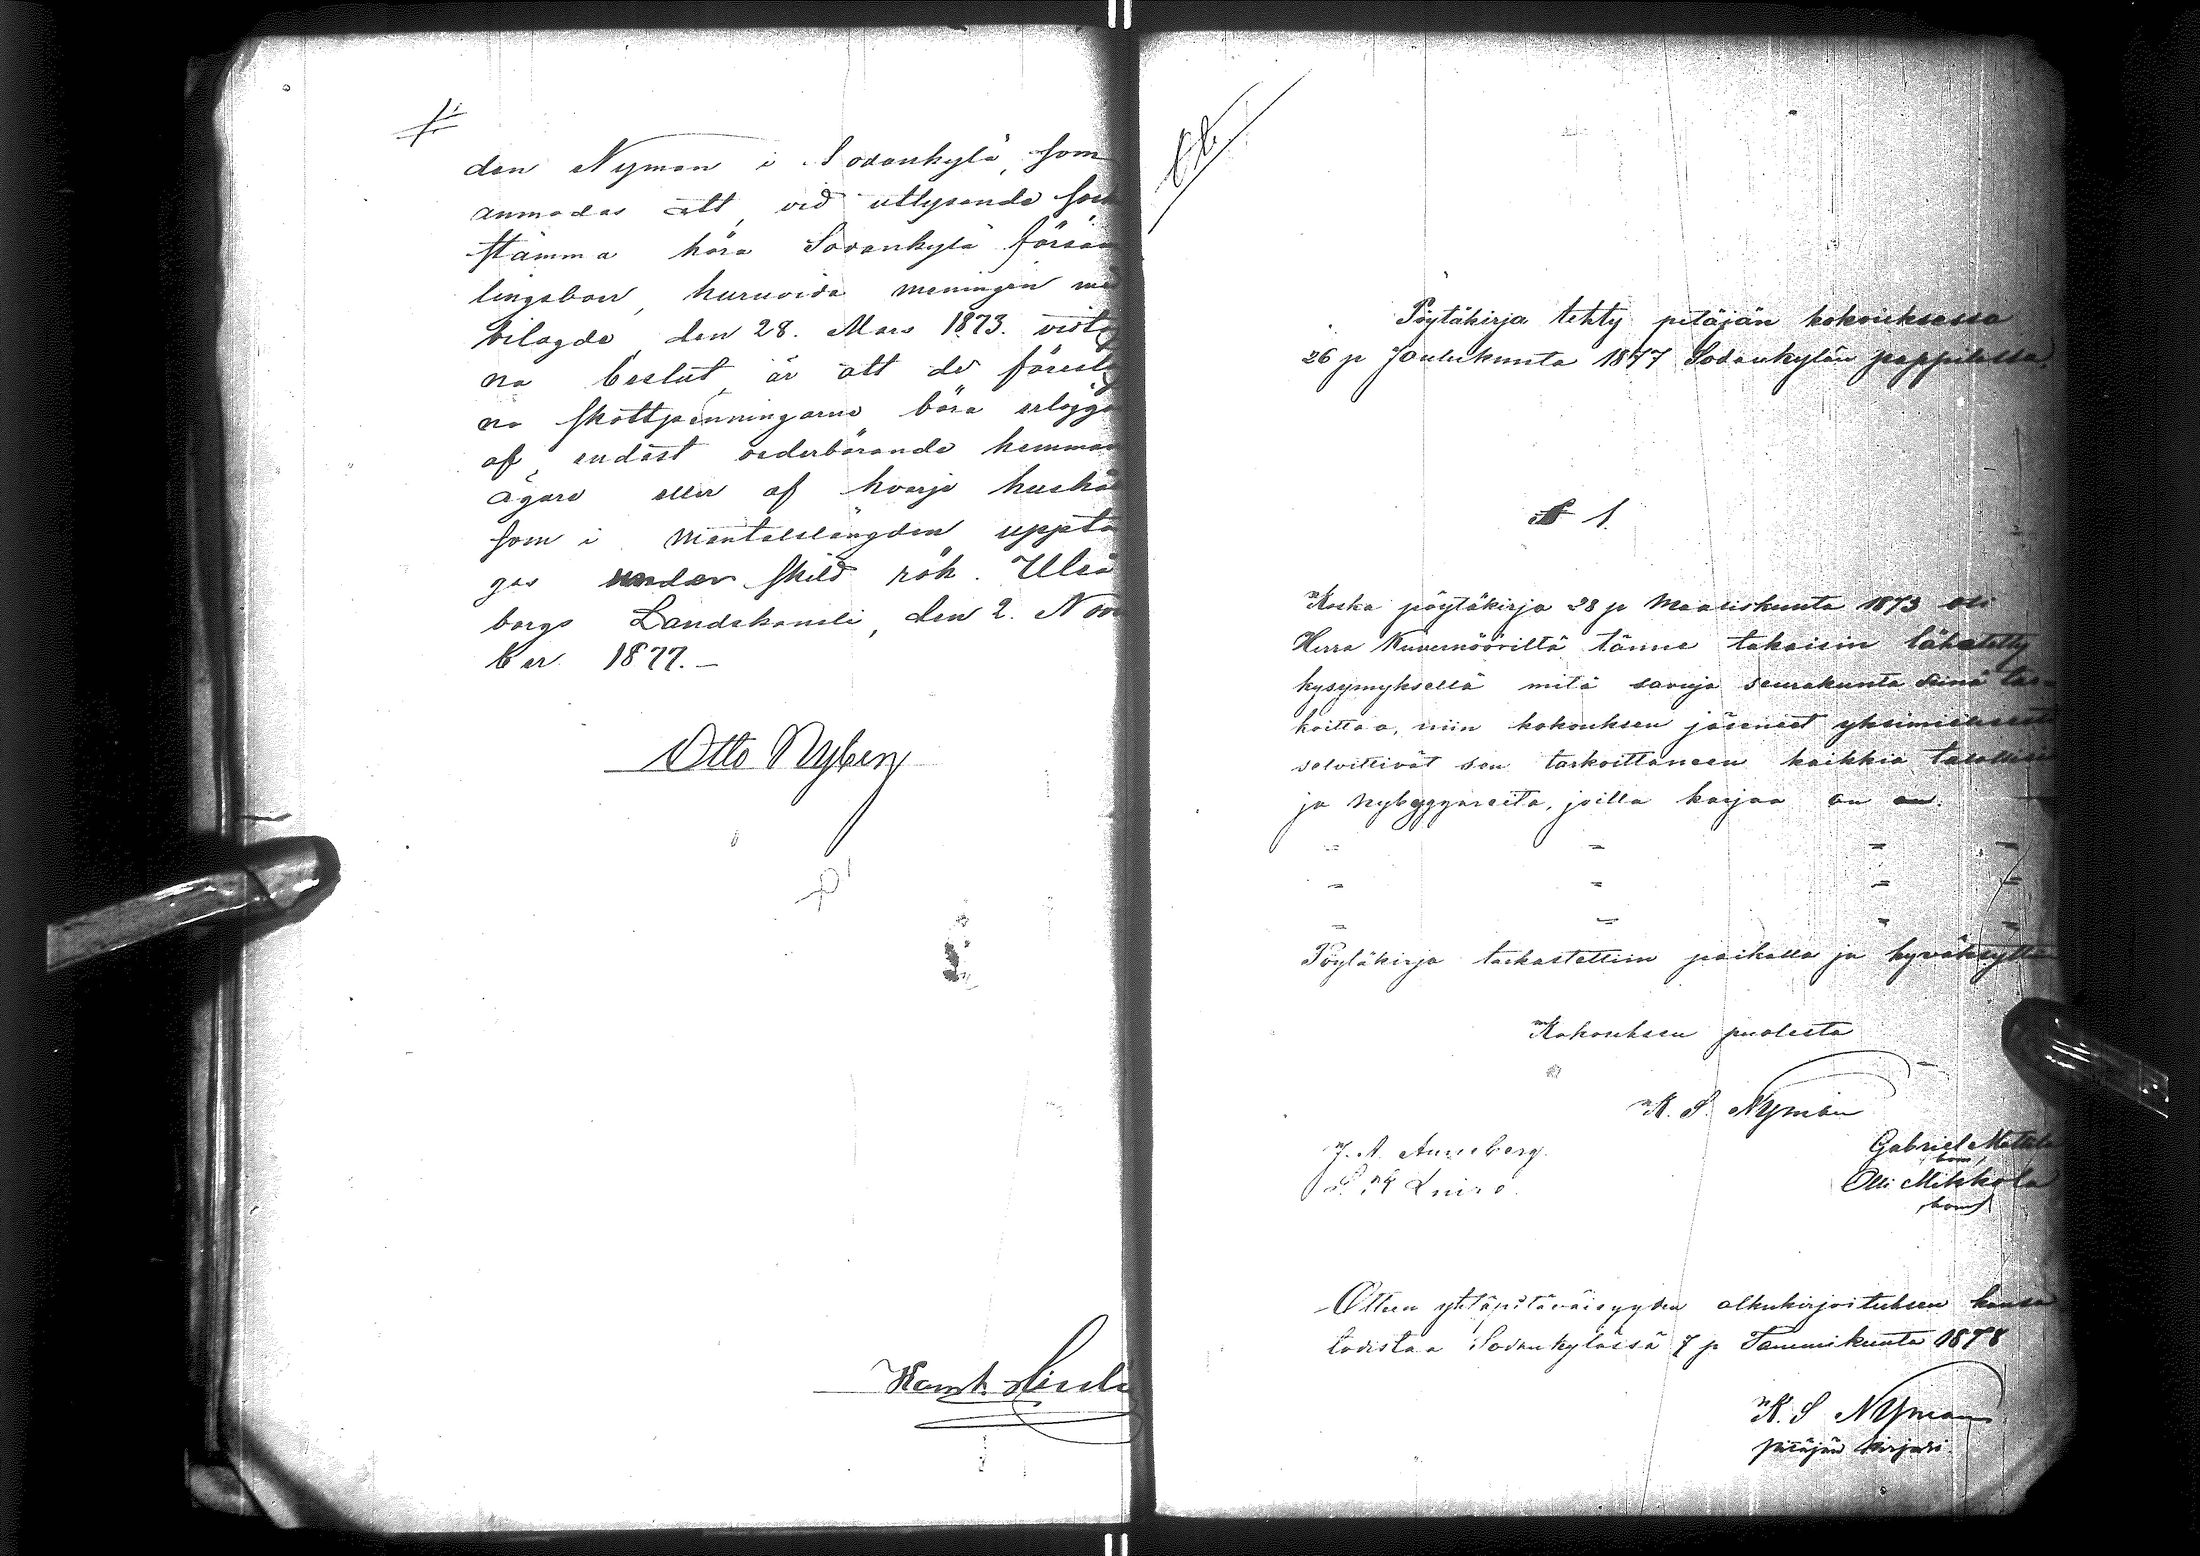 den Nyman i Sodankylä, som
anmodas att, vid utlysande sock
stämma höra Sodankylä försam
lingsboer, huruvida meningen med
bilagde, den 28. Mars 1873. vidta
na beslut, är att de föresla
na skottpenningarne böra erlägga
af, endast vederbörande hemmans
ägare eller af hvarje hushå
som i mantalslängden uppta
gas under skild rök. Uleå
borgs Landskansli, den 2. Nove
ber 1877.-
Otto Nyberg
Pöytäkirja tehty pitäjän kokouksessa
26 p Joulukuuta 1877 Sodankylän pappilassa.
§ 1.
Koska pöytäkirja 28 p Maaliskuuta 1873 oli
Herra Kuvernööriltä tänne takaisin lähetetty
kysymyksellä mitä savuja seurakunta siinä tar-
koittaa, niin kokouksen jäsenet yksimielisesti
selvittivät sen tarkoittaneen kaikkia talollisia
ja nybyggareita, joilla karjaa on.
Pöytäkirja tarkastettiin paikalla ja hyväksyttiin
Kokouksen puolesta
K. S. Nyman
J. A. Anneberg. Gabriel Mattila
Olli Mikkola
Otteen yhtäpitäväisyyden alkukirjoituksen kanssa
todistaa Sodankylässä 7 p Tammikuuta 1878
K. S Nyman
pitäjän kirjuri.